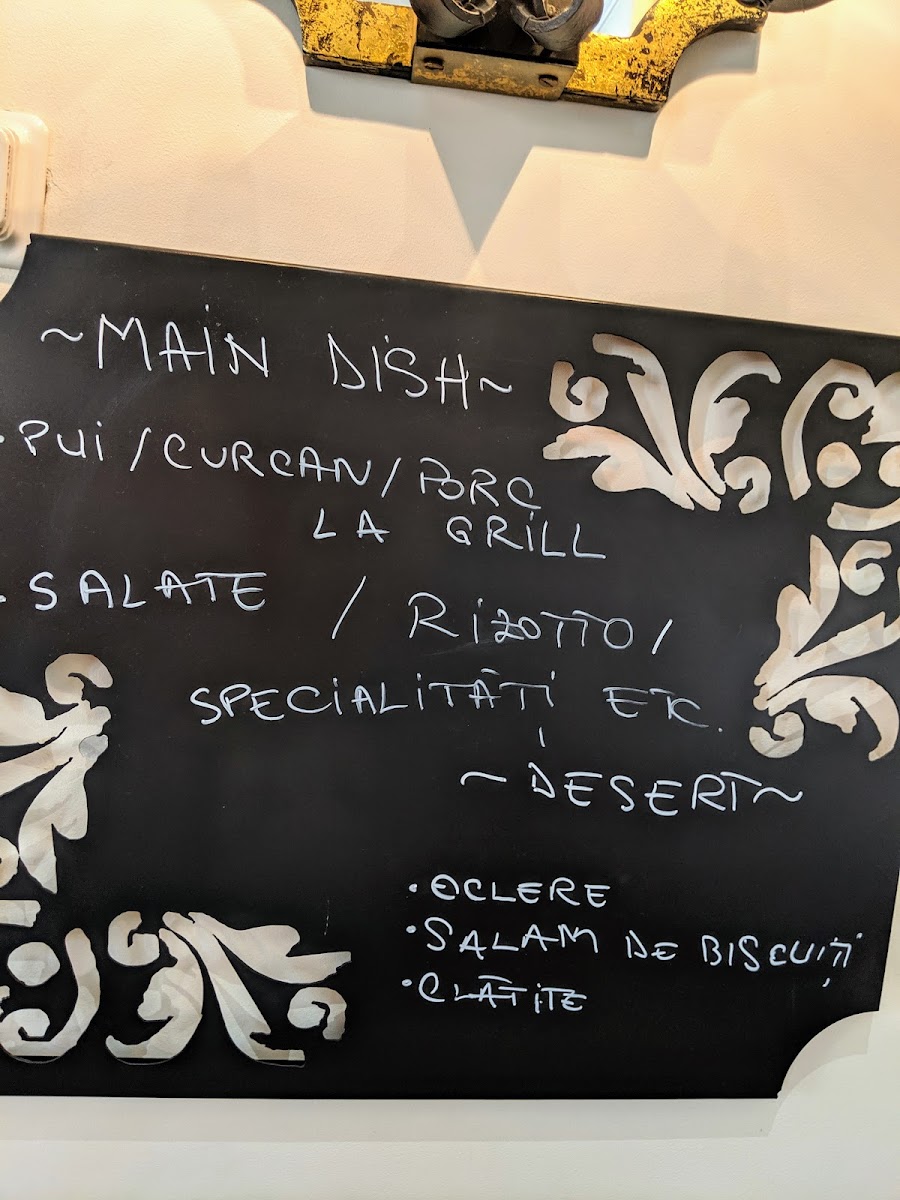 ~MAIN DISH~
·PUI/CURCAN/PORC
LA GRILL
·SALATE / RIZOTTO/
SPECIALITĂȚI ETC.
~DESERT~
·OCLERE
·SALAM DE BISCUIȚI
·CLĂTITE